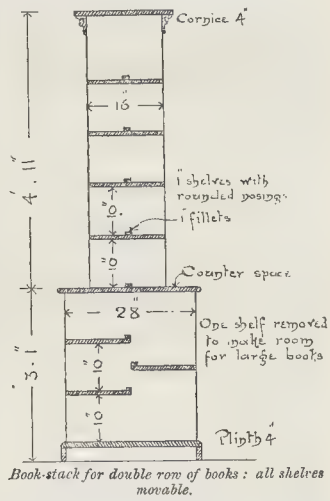 Cornice 4"
16"
4'. 11"
1" shelves with
rounded nosing.
10".
1" fillets
10"
Counter space
28"
One shelf removed
to make room
for large books
3'. 1"
10"
10"
Plinth 4"
Book-stack for double row of books : all shelves
movable.